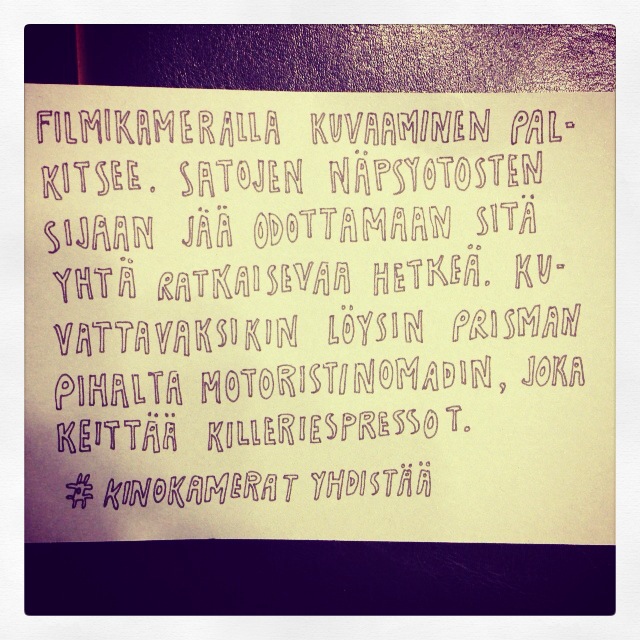 FILMIKAMERALLA KUVAAMINEN PAL-
KITSEE. SATOJEN NÄPSYOTOSTEN
SIJAAN JÄÄ ODOTTAMAAN SITÄ
YHTÄ RATKAISEVAA HETKEÄ. KU-
VATTAVAKSIKIN LÖYSIN PRISMAN
PIHALTA MOTORISTINOMADIN, JOKA
KEITTÄÄ KILLERIESPRESSOT.
# KINOKAMERAT YHDISTÄÄ